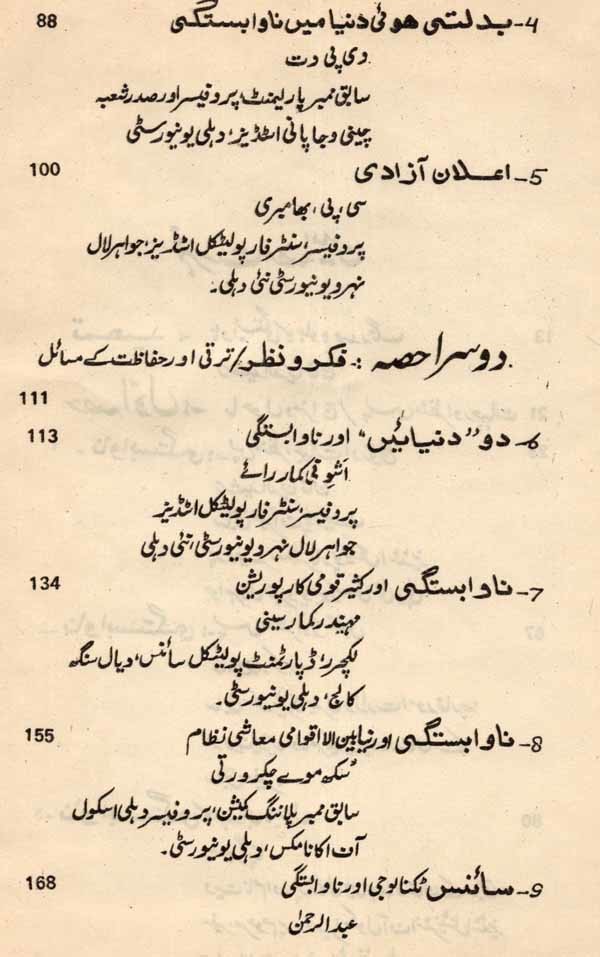 4- بدلتی ھوئی دنیا میں ناوابستگی 88
وی پی دت
سابق ممبر پارلیمنٹ، پروفیسر اور صدر شعبہ
چینی و جاپانی اسٹڈیز، دہلی یونیورسٹی
5- اعلان آزادی 100
سی، پی، بھامبری
پروفیسر، سنٹر فار پولیٹکل اسٹڈیز، جواہر لال
نہرو یونیورسٹی نئی دہلی۔
دوسرا حصہ :۔ فکر و نظر/ ترقی اور حفاظت کے مسائل
111
6- دو "دنیائیں" اور ناوابستگی 113
اشوقی کمار رائے
پروفیسر، سنٹر فار پولیٹکل اسٹڈیز
جواہر لال نہرو یونیورسٹی، نئی دہلی
7- ناوابستگی اور کثیر قومی کارپوریشن 134
مہندر کمار سینی
لکچرر، ڈپارٹمنٹ پولیٹکل سائنس، دیال سنگھ
کالج، دہلی یونیورسٹی۔
8- ناوابستگی اور نیا بین الاقوامی معاشی نظام 155
سُکھ موے چکرورتی
سابق ممبر پلاننگ کمیشن، پروفیسر دہلی اسکول
آف اکانامکس، دہلی یونیورسٹی۔
9- سائنس ٹکنالوجی اور ناوابستگی 168
عبد الرحمٰن